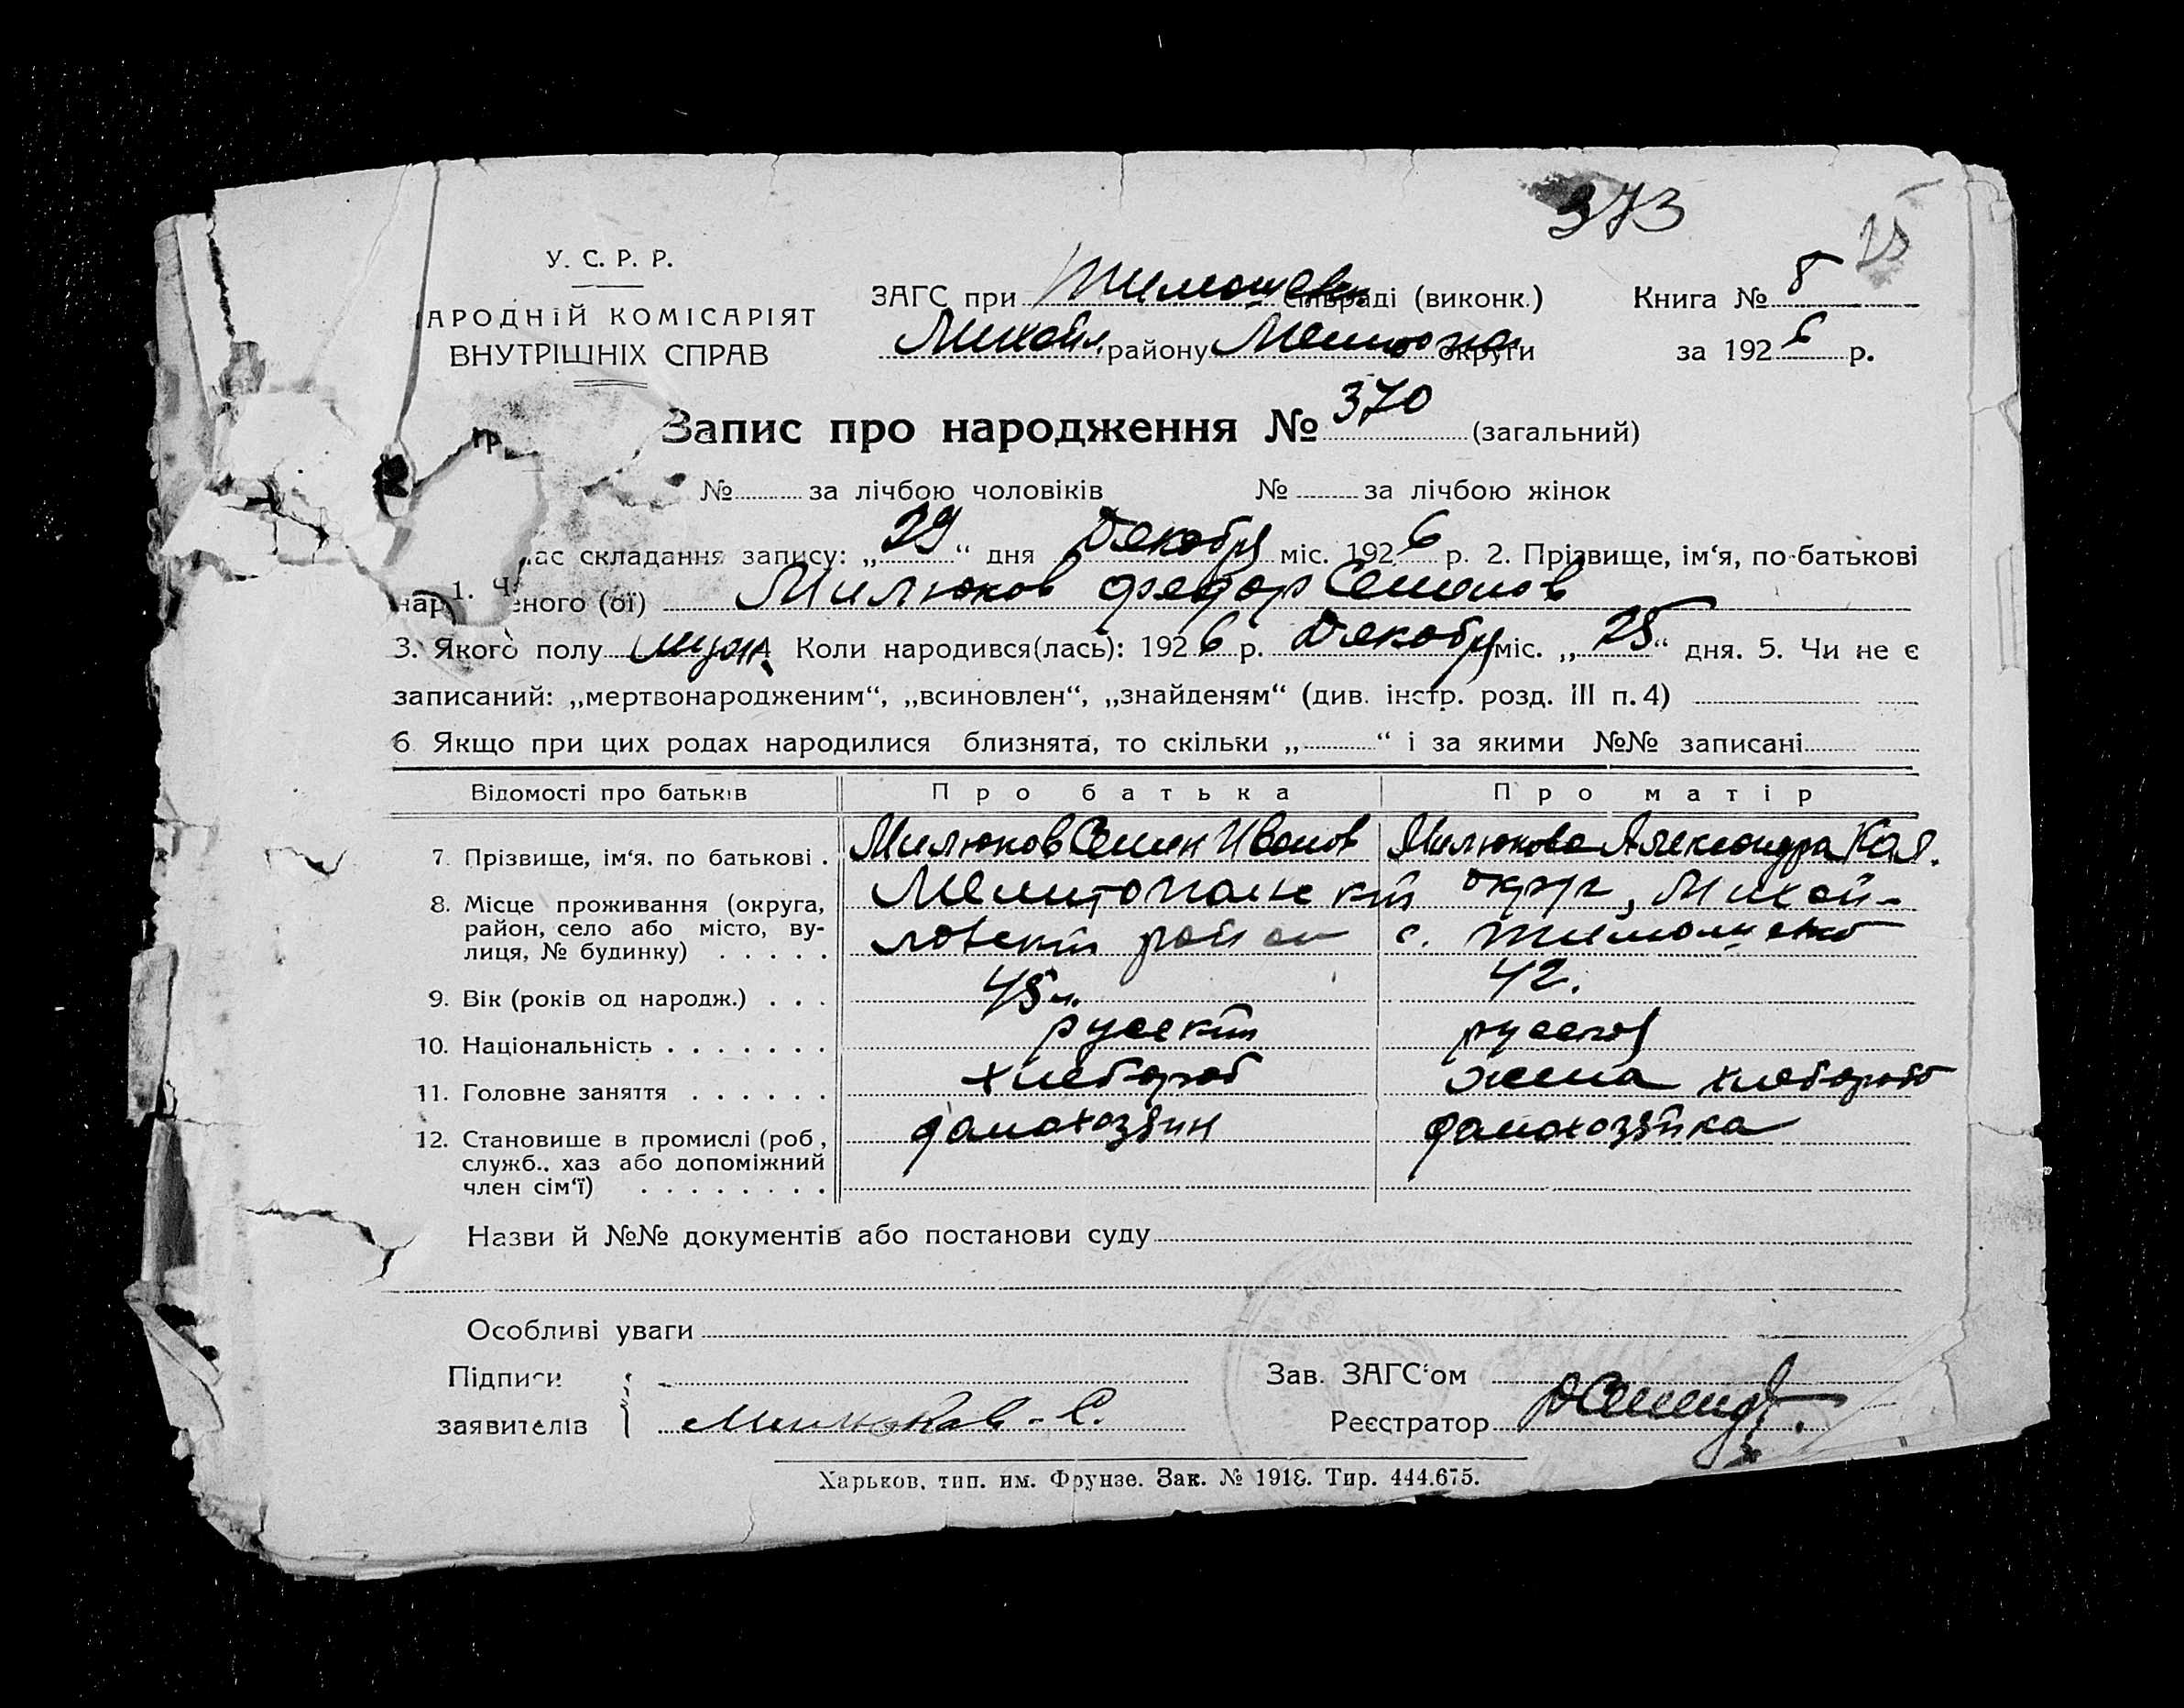 373
25
У. С. Р. Р.
АРОДНІЙ КОМІСАРІЯТ
ВНУТРІШНІХ СПРАВ
ЗАГС при Тимошев сільраді (виконк.)
Книга № 8
Михайл. району Мелитоп округи
за 1926 р.
Запис про народження № 370 (загальний)
№ за лічбою чоловіків № за лічбою жінок
час складання запису: „29“ дня Декабря міс. 1926 р. 2. Прізвище, ім‘я, по-батькові
1. Ч
нар еного (ої) Милюков Федор Семенов
3. Якого полу муж 4 Коли народився(лась): 1926 р. Декабря міс. „25“ дня. 5. Чи не є
записаний: „мертвонародженим“, „всиновлен“, „знайденям“ (див. інстр. розд. III п. 4)
6 Якщо при цих родах народилися близнята, то скільки „ “ і за якими №№ записані
Відомості про батьків Про батька Про матір
7. Прізвище, ім‘я, по батькові . Милюков Семен Иванов Милюкова Александра Кал.
8. Місце проживання (округа, район, село або місто, вулиця, № будинку) . . . . . Мелитопольский округ, Михай-
ловский район с. Тимошевка
9. Вік (років од народж.) . . . 45 л. 42.
10. Національність . . . . . . . русский русская
11. Головне заняття . . . . . . хлебороб жена хлебороба
12. Становище в промислі (роб, служб., хаз або допоміжний член сім‘ї) . . . . . . . . домохозяин домохозяйка
Назви й №№ документів або постанови суду
Особливі уваги
Підписи
заявителів
Милюков. С.
Зав. ЗАГС‘ом
Реєстратор
Харьков, тип. им. Фрунзе. Зак. № 1918. Тир. 444.675.